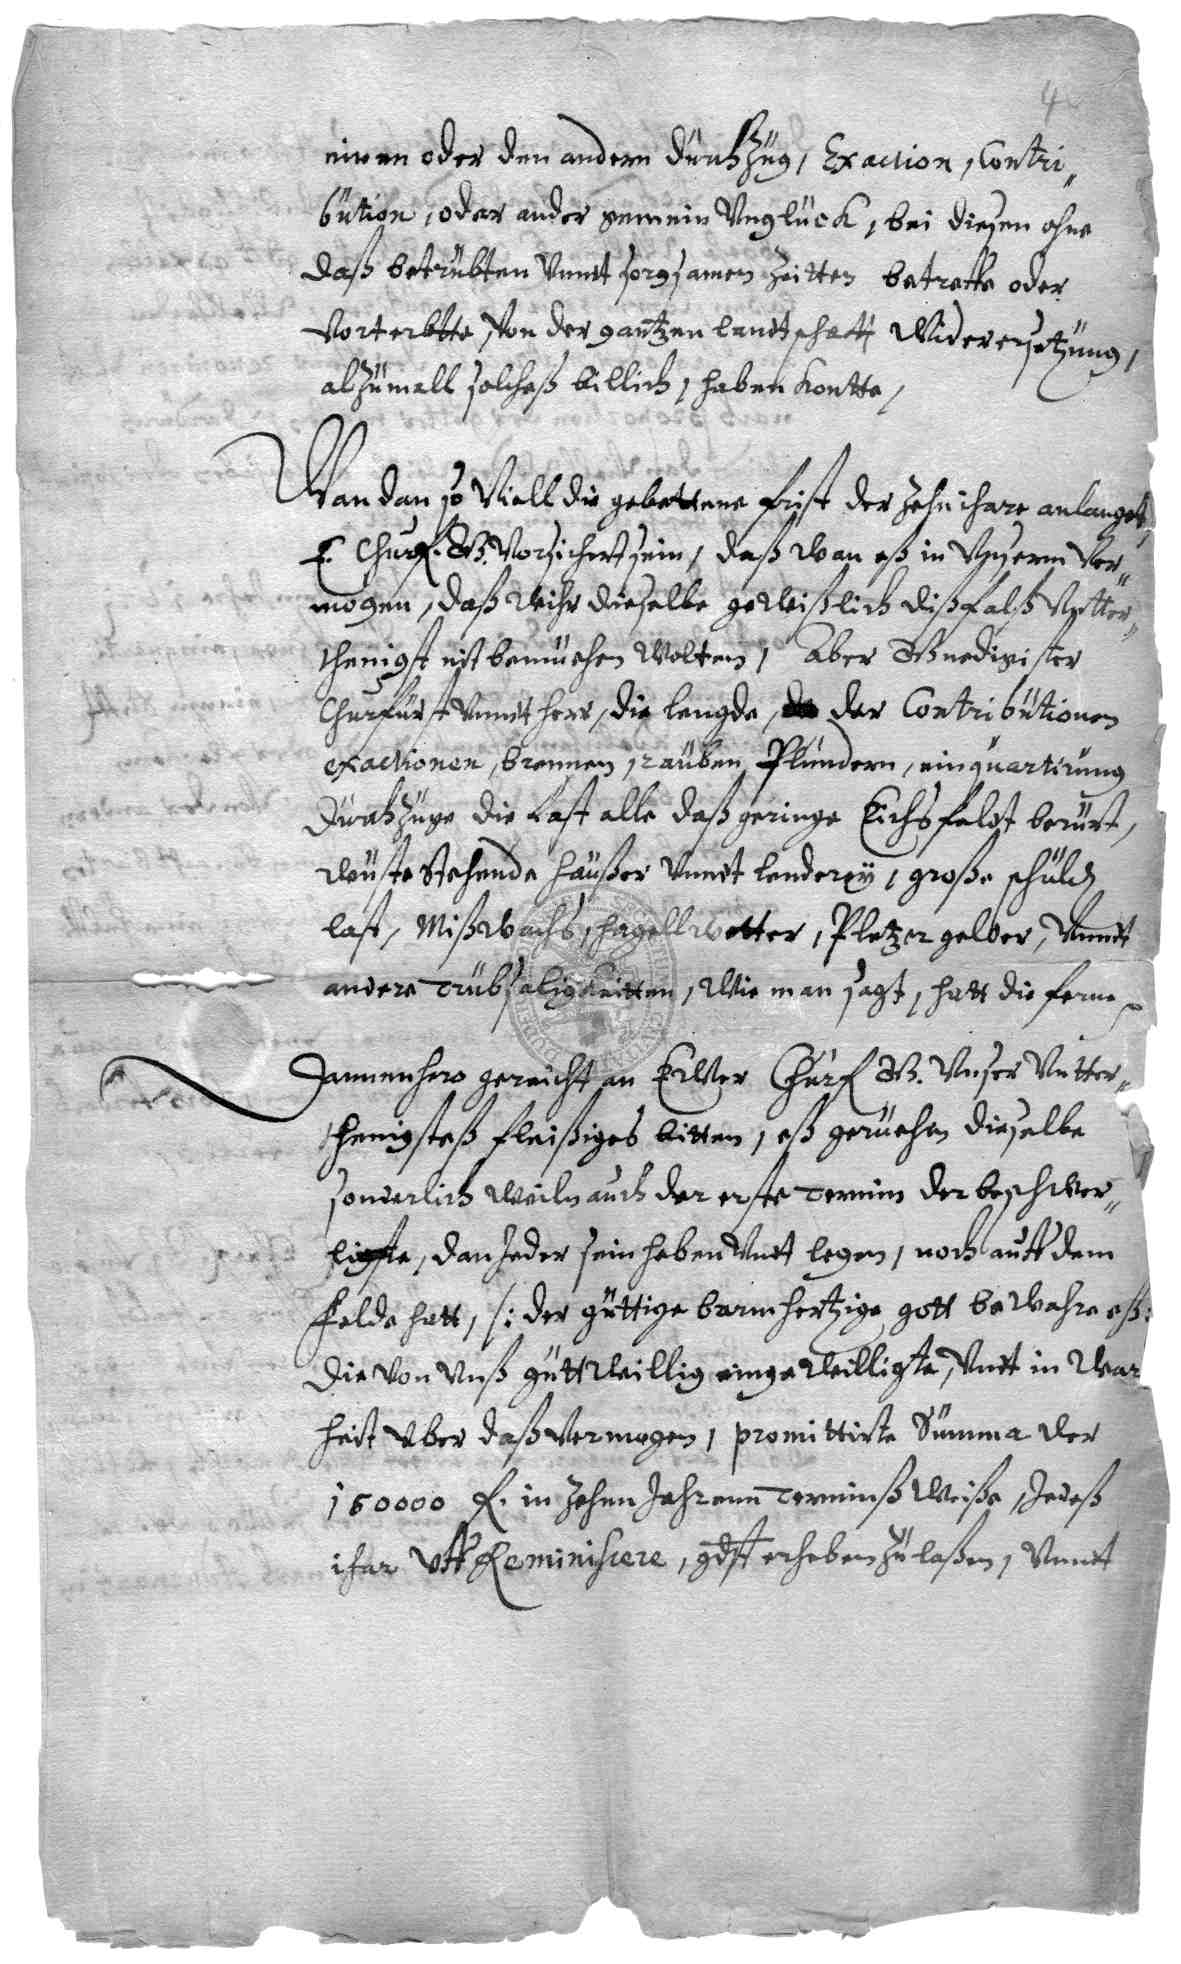 4
einen oder den andern Durchzüg, Exaction, Contri„
bütion, oder ander gemein Vnglück, bei diesen ohne
daß betrübten Vnndt sorgsamen Zeitten betreffe oder
Vorterbtte, von der gantzen landtschafft Widerersetzüng,
alzümall solcheß billich, haben Kontte,
Wan dan so Viell die gebettene frist der zehn ihare anlanget,
E. Churf. G. Vorsichert sein, daß wan eß in Vnserm Ver„
mogen, daß wihr dieselbe gewißlich dißfalß Vntter„
thenigst nit bemüehen Wolten, Aber Gnedigister
Churfürst Vnndt herr, die lengde, der Contribütionen
exactionen, brennen, raüben, Plündern, einquartirüng
Dürchzüge die Last alle daß geringe Eichsfeldt berürt,
wüste Stehende Haüßer Vnndt lenderey, große schüldt
last, Mißwachs, hagellwetter, Pletzer gelder, Vnndt
andere Trübsaligkeitten, Wie man sagt, hatt die ferne
Dannenhero gereicht an EWer Churf G. Vnser Vntter„
thenigsteß fleißiges bitten, eß gerüehen dieselbe
sonderlich Weiln auch der erste Termin der beschwer„
ligste, dan Jeder sein heben Vndt legen, noch auff dem
Felde hatt, /: der güttige barmhertzige gott bewahre eß :
die von Vnß güttwillig eingewilligte, Vndt in War
heit Vber daß Vermogen, promittirte Summa der
160000 f. in zehen Jahrenn Terminß Weiße, Jedeß
ihar Vff Reminiscere, gdst erheben zülaßen, Vnndt